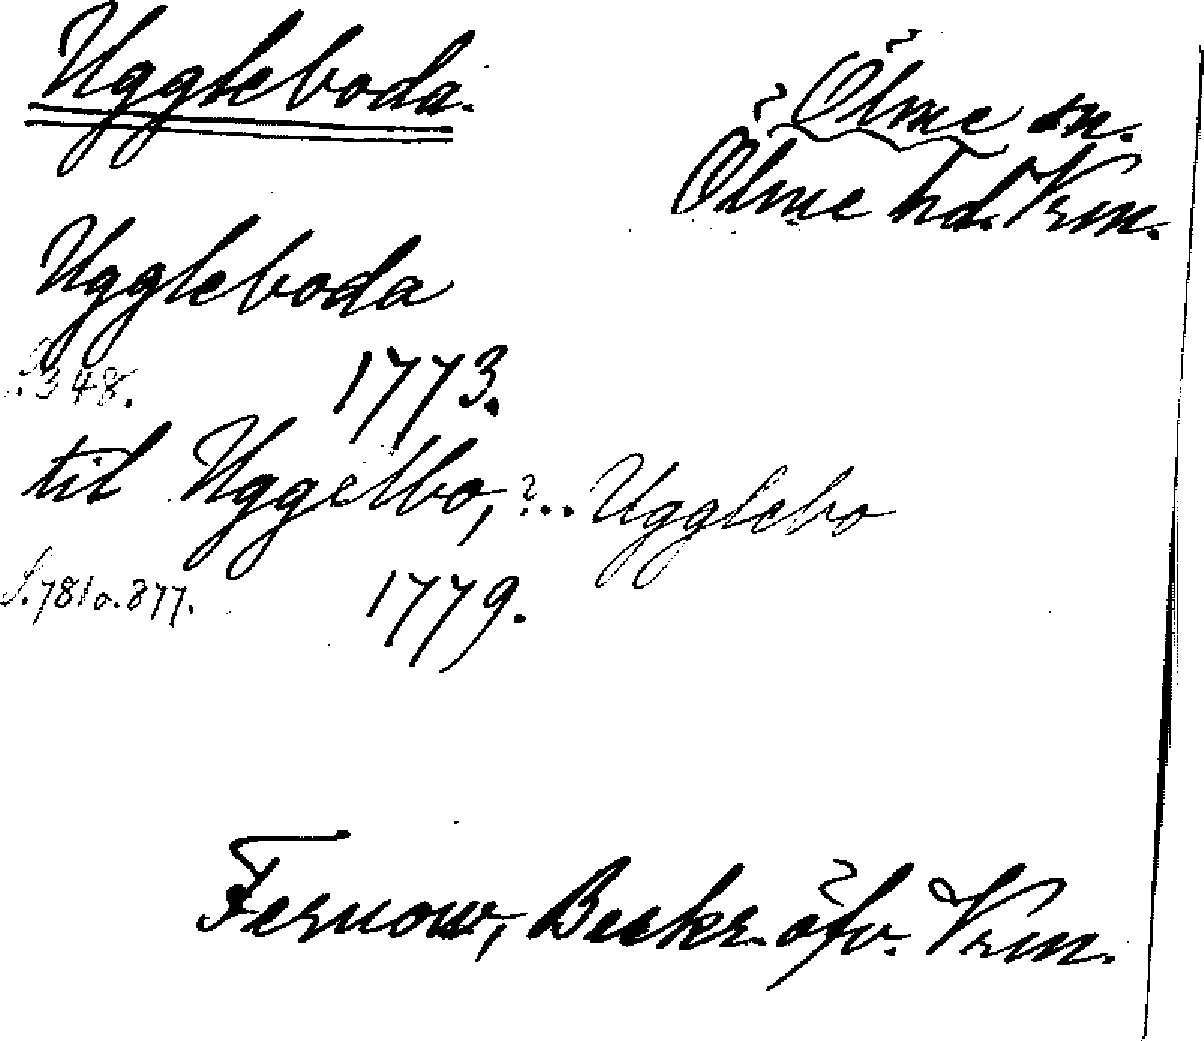 Uggleboda.
Ölme sn.
Ölme hd. Vrm.
Uggleboda
S. 348.
1773.
til Uggelbo, ... Ugglebo
S. 781 o. 877.
1779.
Fernow, Beskr. öfv. Vrm.